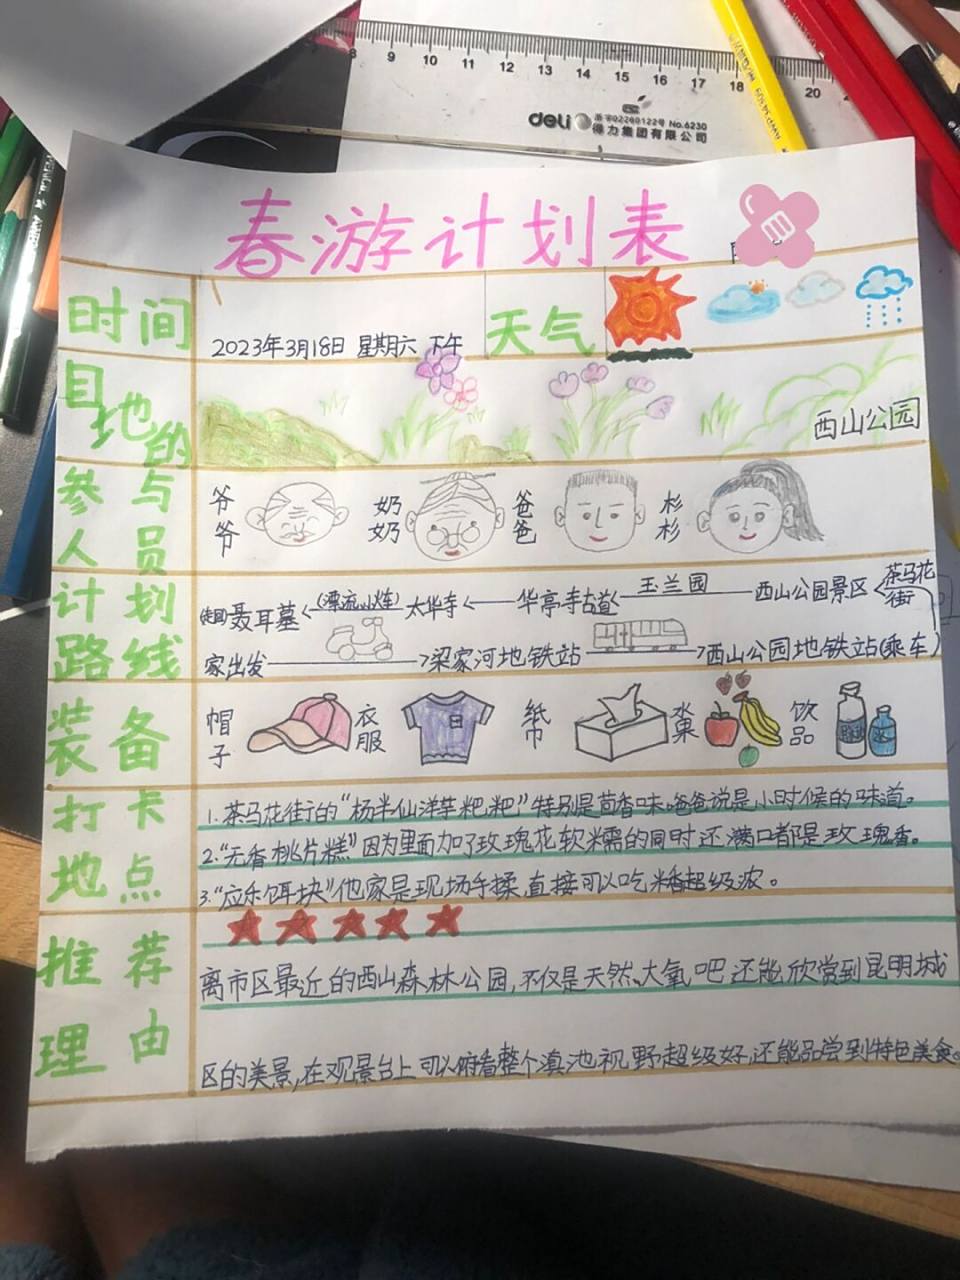 8 9 10 11 12 13 14 15 16 17 18 20
deli 浙制02280122号 No.6230
得力集团有限公司
春游计划表
时间 2023年3月18日 星期六 下午 天气
目的地 西山公园
参与人员 爷爷 奶奶 爸爸 杉杉
计划路线
徒步聂耳墓 (漂流小火车) 太华寺 华亭寺古道 玉兰园 西山公园景区 茶马花街
家出发 梁家河地铁站 西山公园地铁站(乘车)
装备 帽子 衣服 纸巾 水果 饮品
打卡地点
1.茶马花街的“杨半仙洋芋粑粑”特别是茴香味,爸爸说是小时候的味道。
2.“无香桃片糕”因为里面加了玫瑰花软糯的同时还满口都是玫瑰香。
3.“应乐饵块”他家是现场手揉直接可以吃米香超级浓。
推荐理由
离市区最近的西山森林公园,不仅是天然大氧吧还能欣赏到昆明城
区的美景,在观景台上可以俯看整个滇池视野超级好,还能品尝到特色美食。